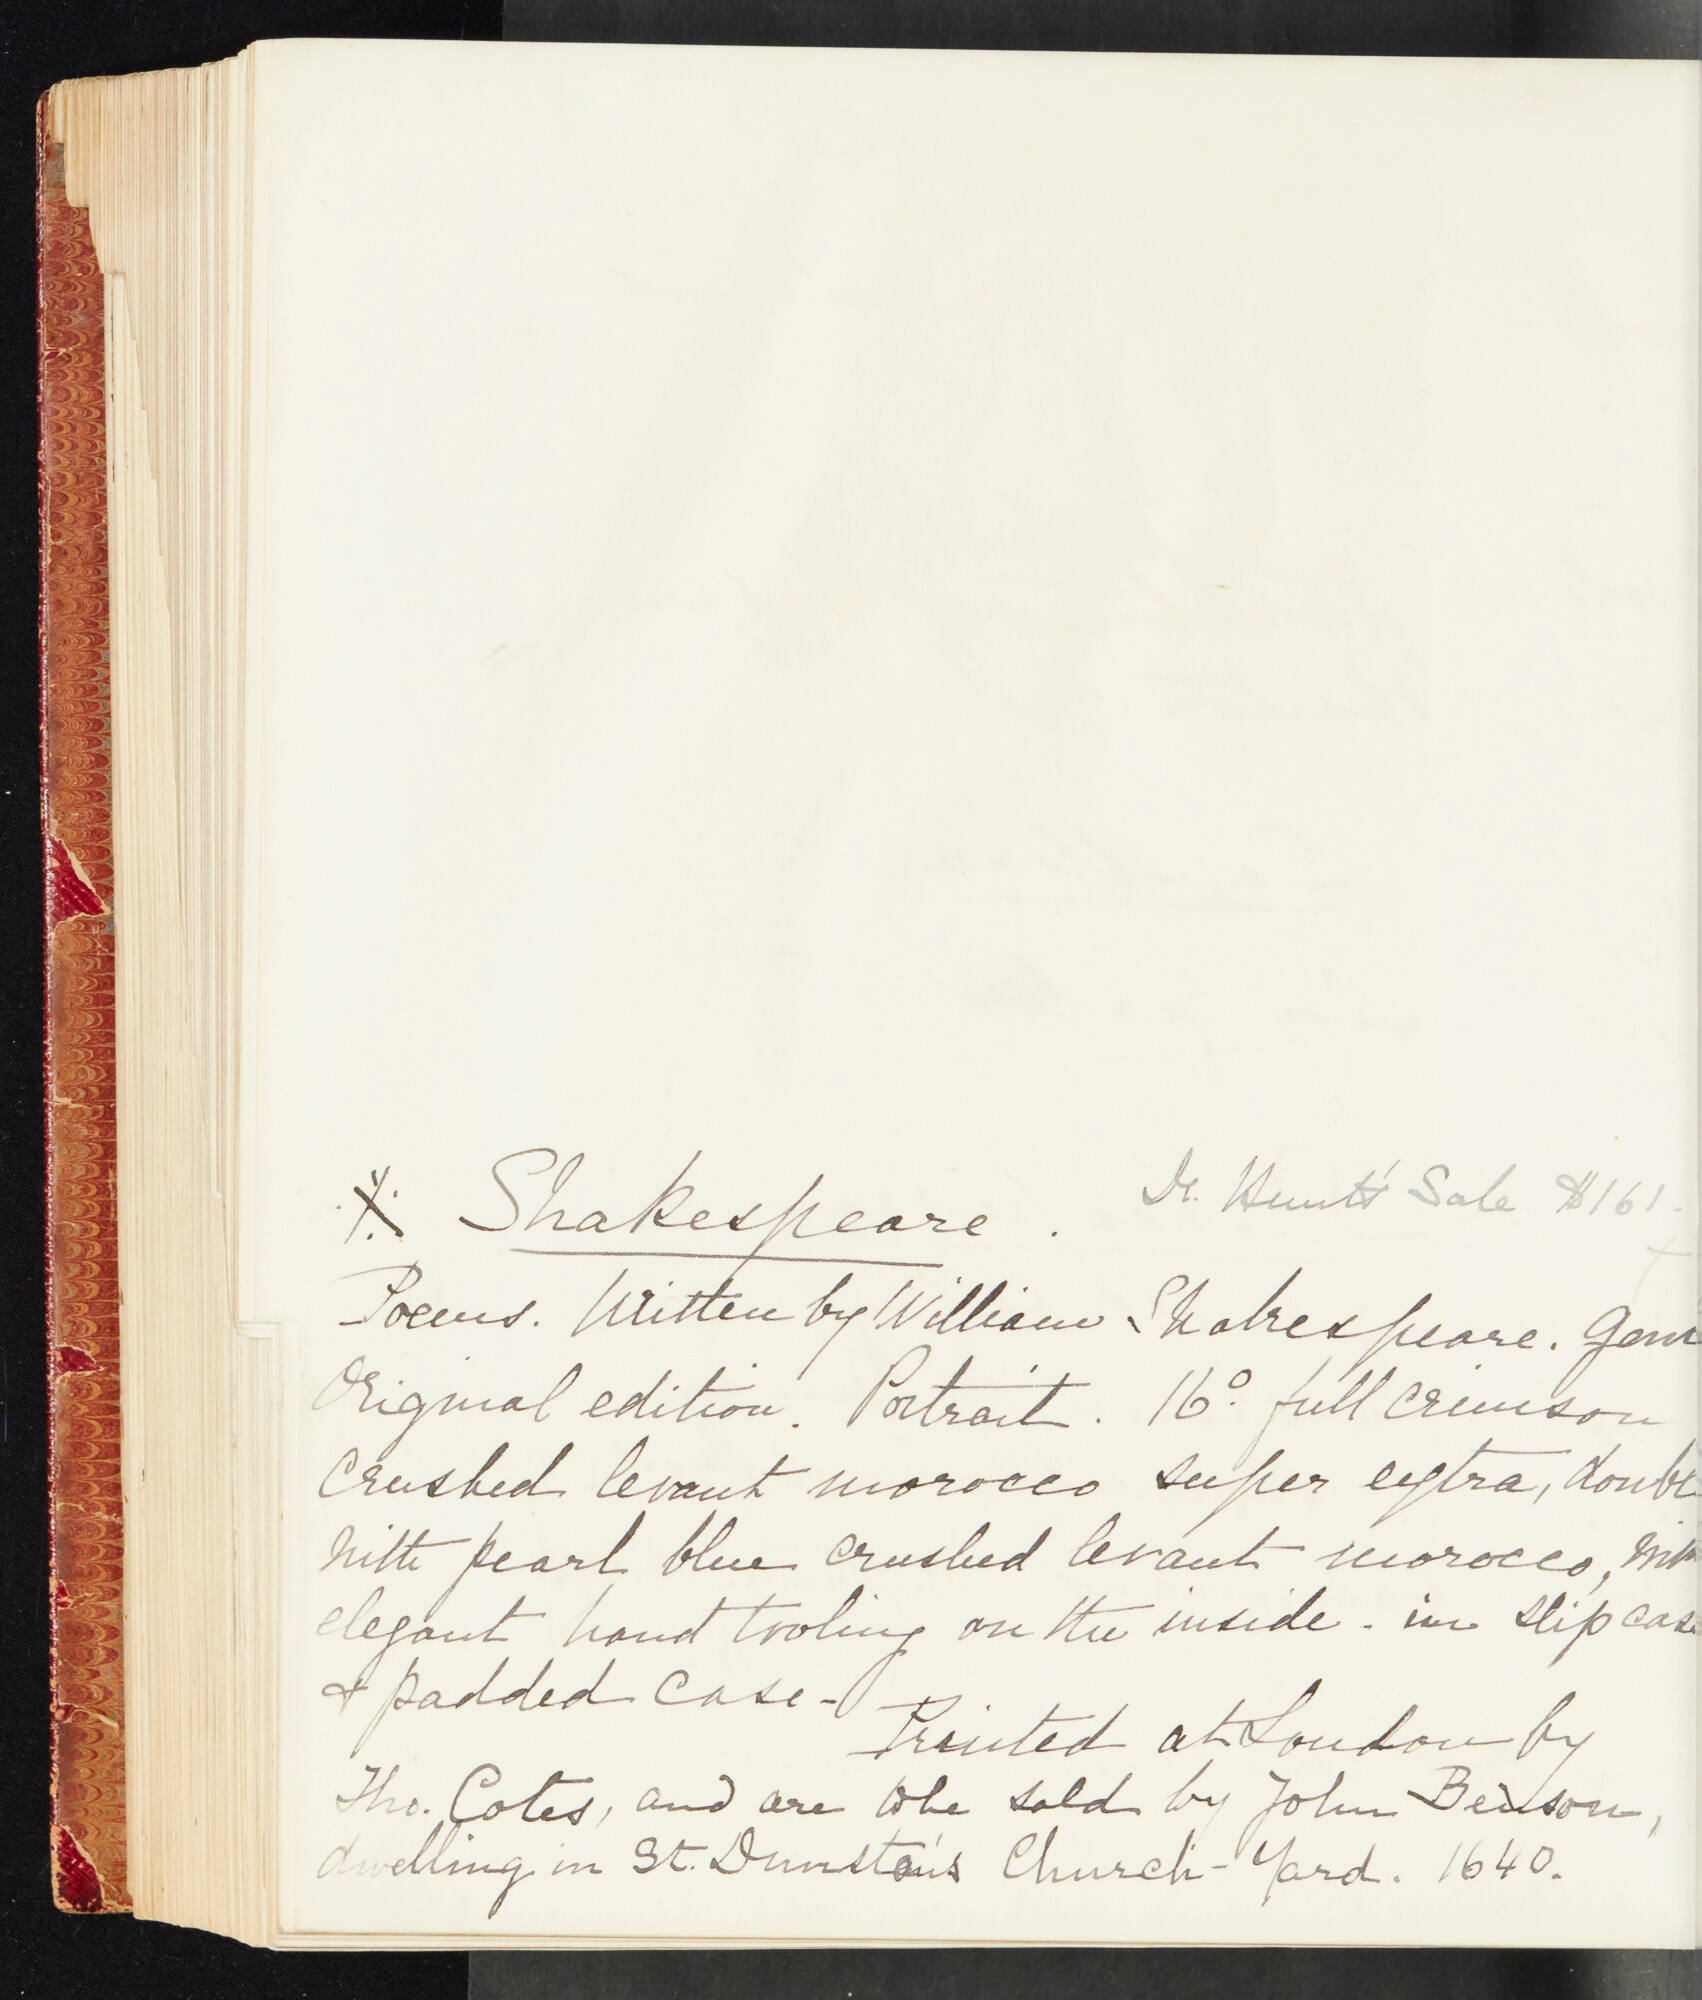 Shakespeare. Dr. Hunt's Sale $161.
Poems. Written by William Shakespeare. Gent
Original edition. Portrait. 16º. full crimson
crushed levant morocco super extra, double
with pearl blue crushed levant morocco, with
elegant hand tooling on the inside - in slip case
& padded case -
Printed at London by
Tho. Cotes, and are to be sold by John Benson,
dwelling in St. Dunstan's Church-Yard. 1640.